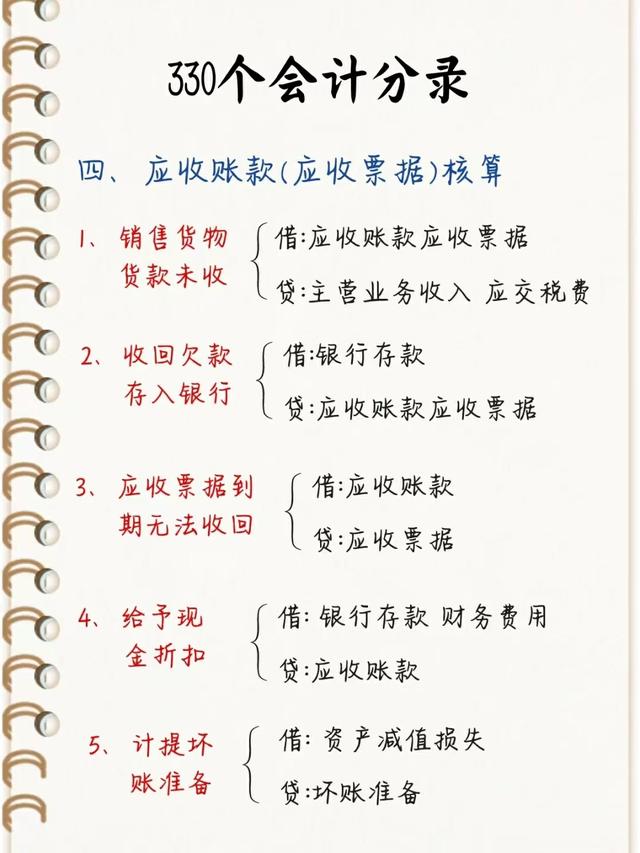 330个会计分录
四、应收账款(应收票据)核算
1、销售货物
货款未收
借:应收账款应收票据
贷:主营业务收入 应交税费
2、收回欠款
存入银行
借:银行存款
贷:应收账款应收票据
3、应收票据到
期无法收回
借:应收账款
贷:应收票据
4、给予现
金折扣
借: 银行存款 财务费用
贷:应收账款
5、计提坏
账准备
借: 资产减值损失
贷:坏账准备